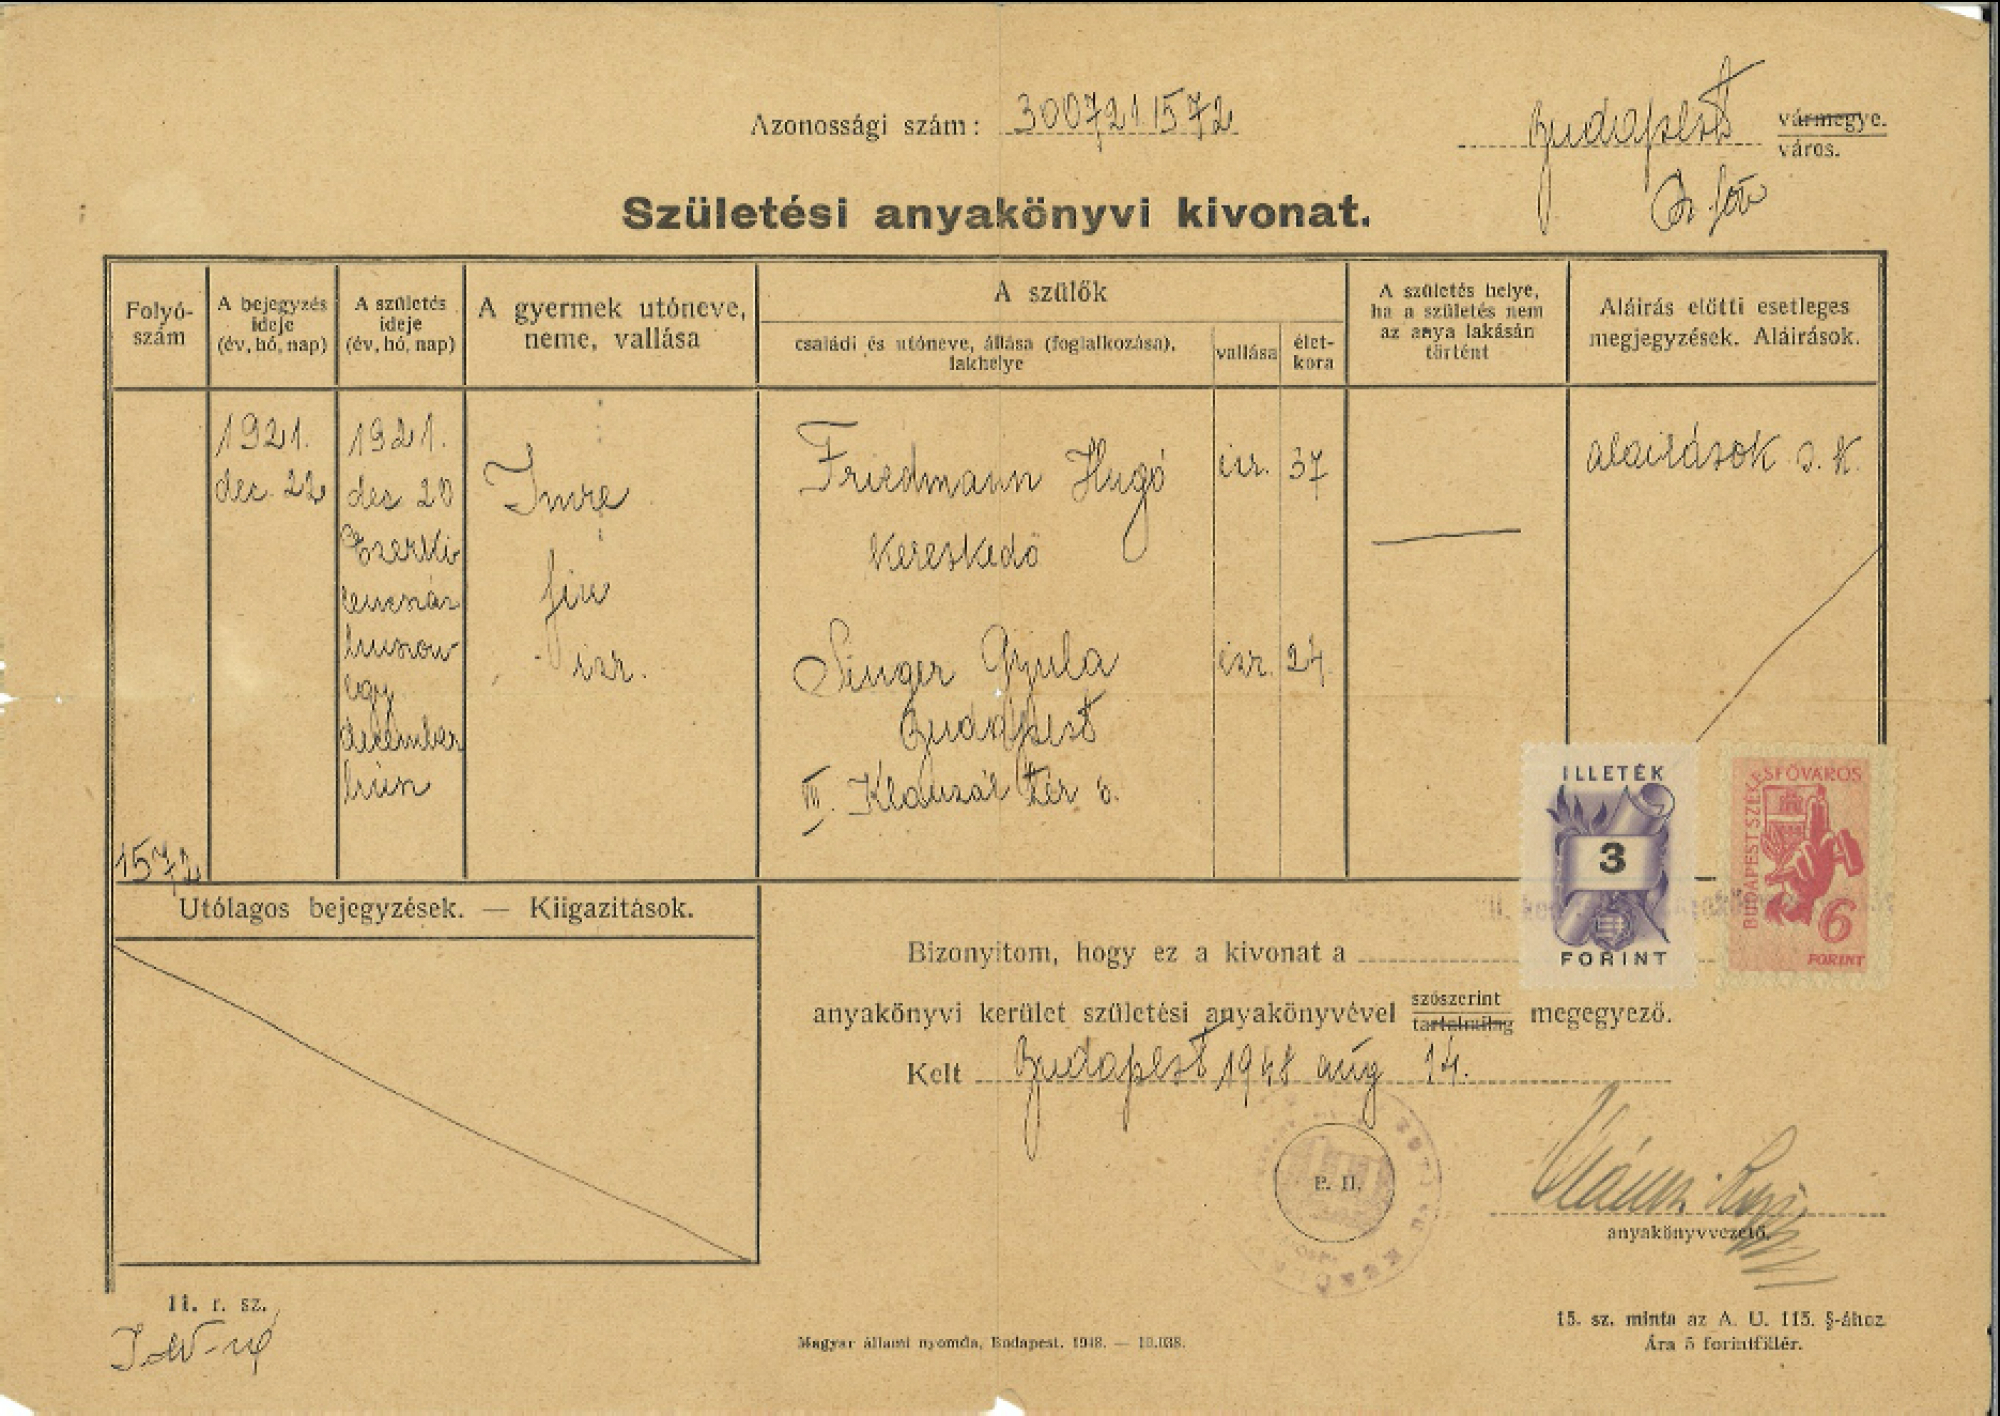 Azonossági szám: 3007211572
Budapest vármegye.
város.
Születési anyakönyvi kivonat.
Folyó-
szám
A bejegyzés
ideje
(év, hó, nap)
A születés
ideje
(év, hó, nap)
A gyermek utóneve,
neme, vallása
A szülők
családi és utóneve, állása (foglalkozása),
lakhelye
vallása
élet-
kora
A születés helye,
ha a születés nem
az anya lakásán
történt
Aláírás előtti esetleges
megjegyzések. Aláírások.
1572
1921.
dec. 22
1921.
dec 20
Ezerki-
lencszáz
huszon
egy
december
húsz
Imre
fiu
izr.
Friedmann Hugó
kereskedő
izr. 37
Singer Gyula
izr. 24
Budapest
VII. Klauzál tér 6.
aláirások s. k.
ILLETÉK
3
FORINT
BUDAPEST SZÉKESFŐVÁROS
6
FORINT
Utólagos bejegyzések. — Kiigazítások.
Bizonyítom, hogy ez a kivonat a
anyakönyvi kerület születési anyakönyvével szószerint megegyező.
tartalmilag
Kelt Budapest, 1948 aug 14.
P. H.
anyakönyvvezető.
11. r. sz.
Magyar állami nyomda, Budapest. 1948. — 10.038.
15. sz. minta az A. U. 115. §-ához.
Ára 5 forintfillér.